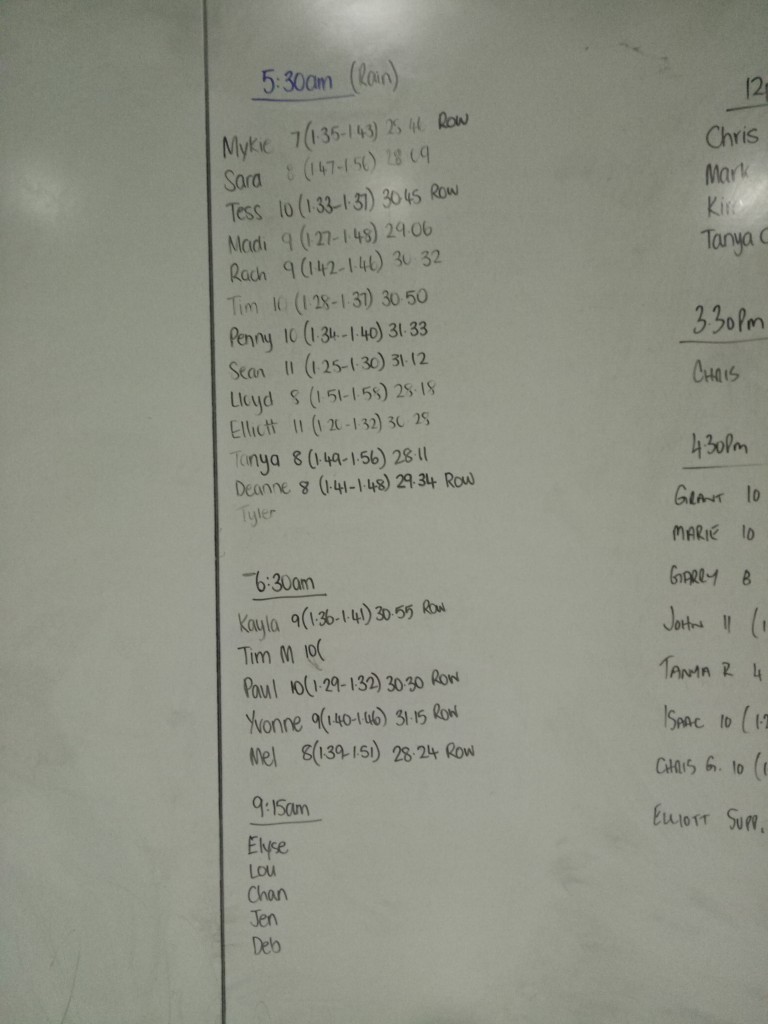 5:30am (Rain)
Mykie 7 (1.35-1.43) 25.46 Row
Sara 8 (1.47-1.50) 28.09
Tess 10 (1.33-1.37) 30.45 Row
Madi 9 (1.27-1.48) 29.06
Rach 9 (1.42-1.46) 30.32
Tim 10 (1.28-1.37) 30.50
Penny 10 (1.34-1.40) 31.33
Sean 11 (1.25-1.30) 31.12
Lloyd 8 (1.51-1.58) 28.18
Elliott 11 (1.20-1.32) 30.28
Tanya 8 (1.49-1.56) 28.11
Deanne 8 (1.41-1.48) 29.34 Row
Tyler
6:30am
Kayla 9 (1.36-1.41) 30.55 Row
Tim M 10(
Paul 10 (1.29-1.32) 30.30 Row
Yvonne 9 (1.40-1.46) 31.15 Row
Mel 8 (1.39-1.51) 28.24 Row
9:15am
Elyse
Lou
Chan
Jen
Deb
12
Chris
Mark
Tanya
3.30pm
CHRIS
4.30pm
GRANT 10
MARIE 10
GARRY 8
JOHN 11 (1
TANYA R 4
ISAAC 10 (1.2
CHRIS G. 10 (1
ELLIOTT SUPP.